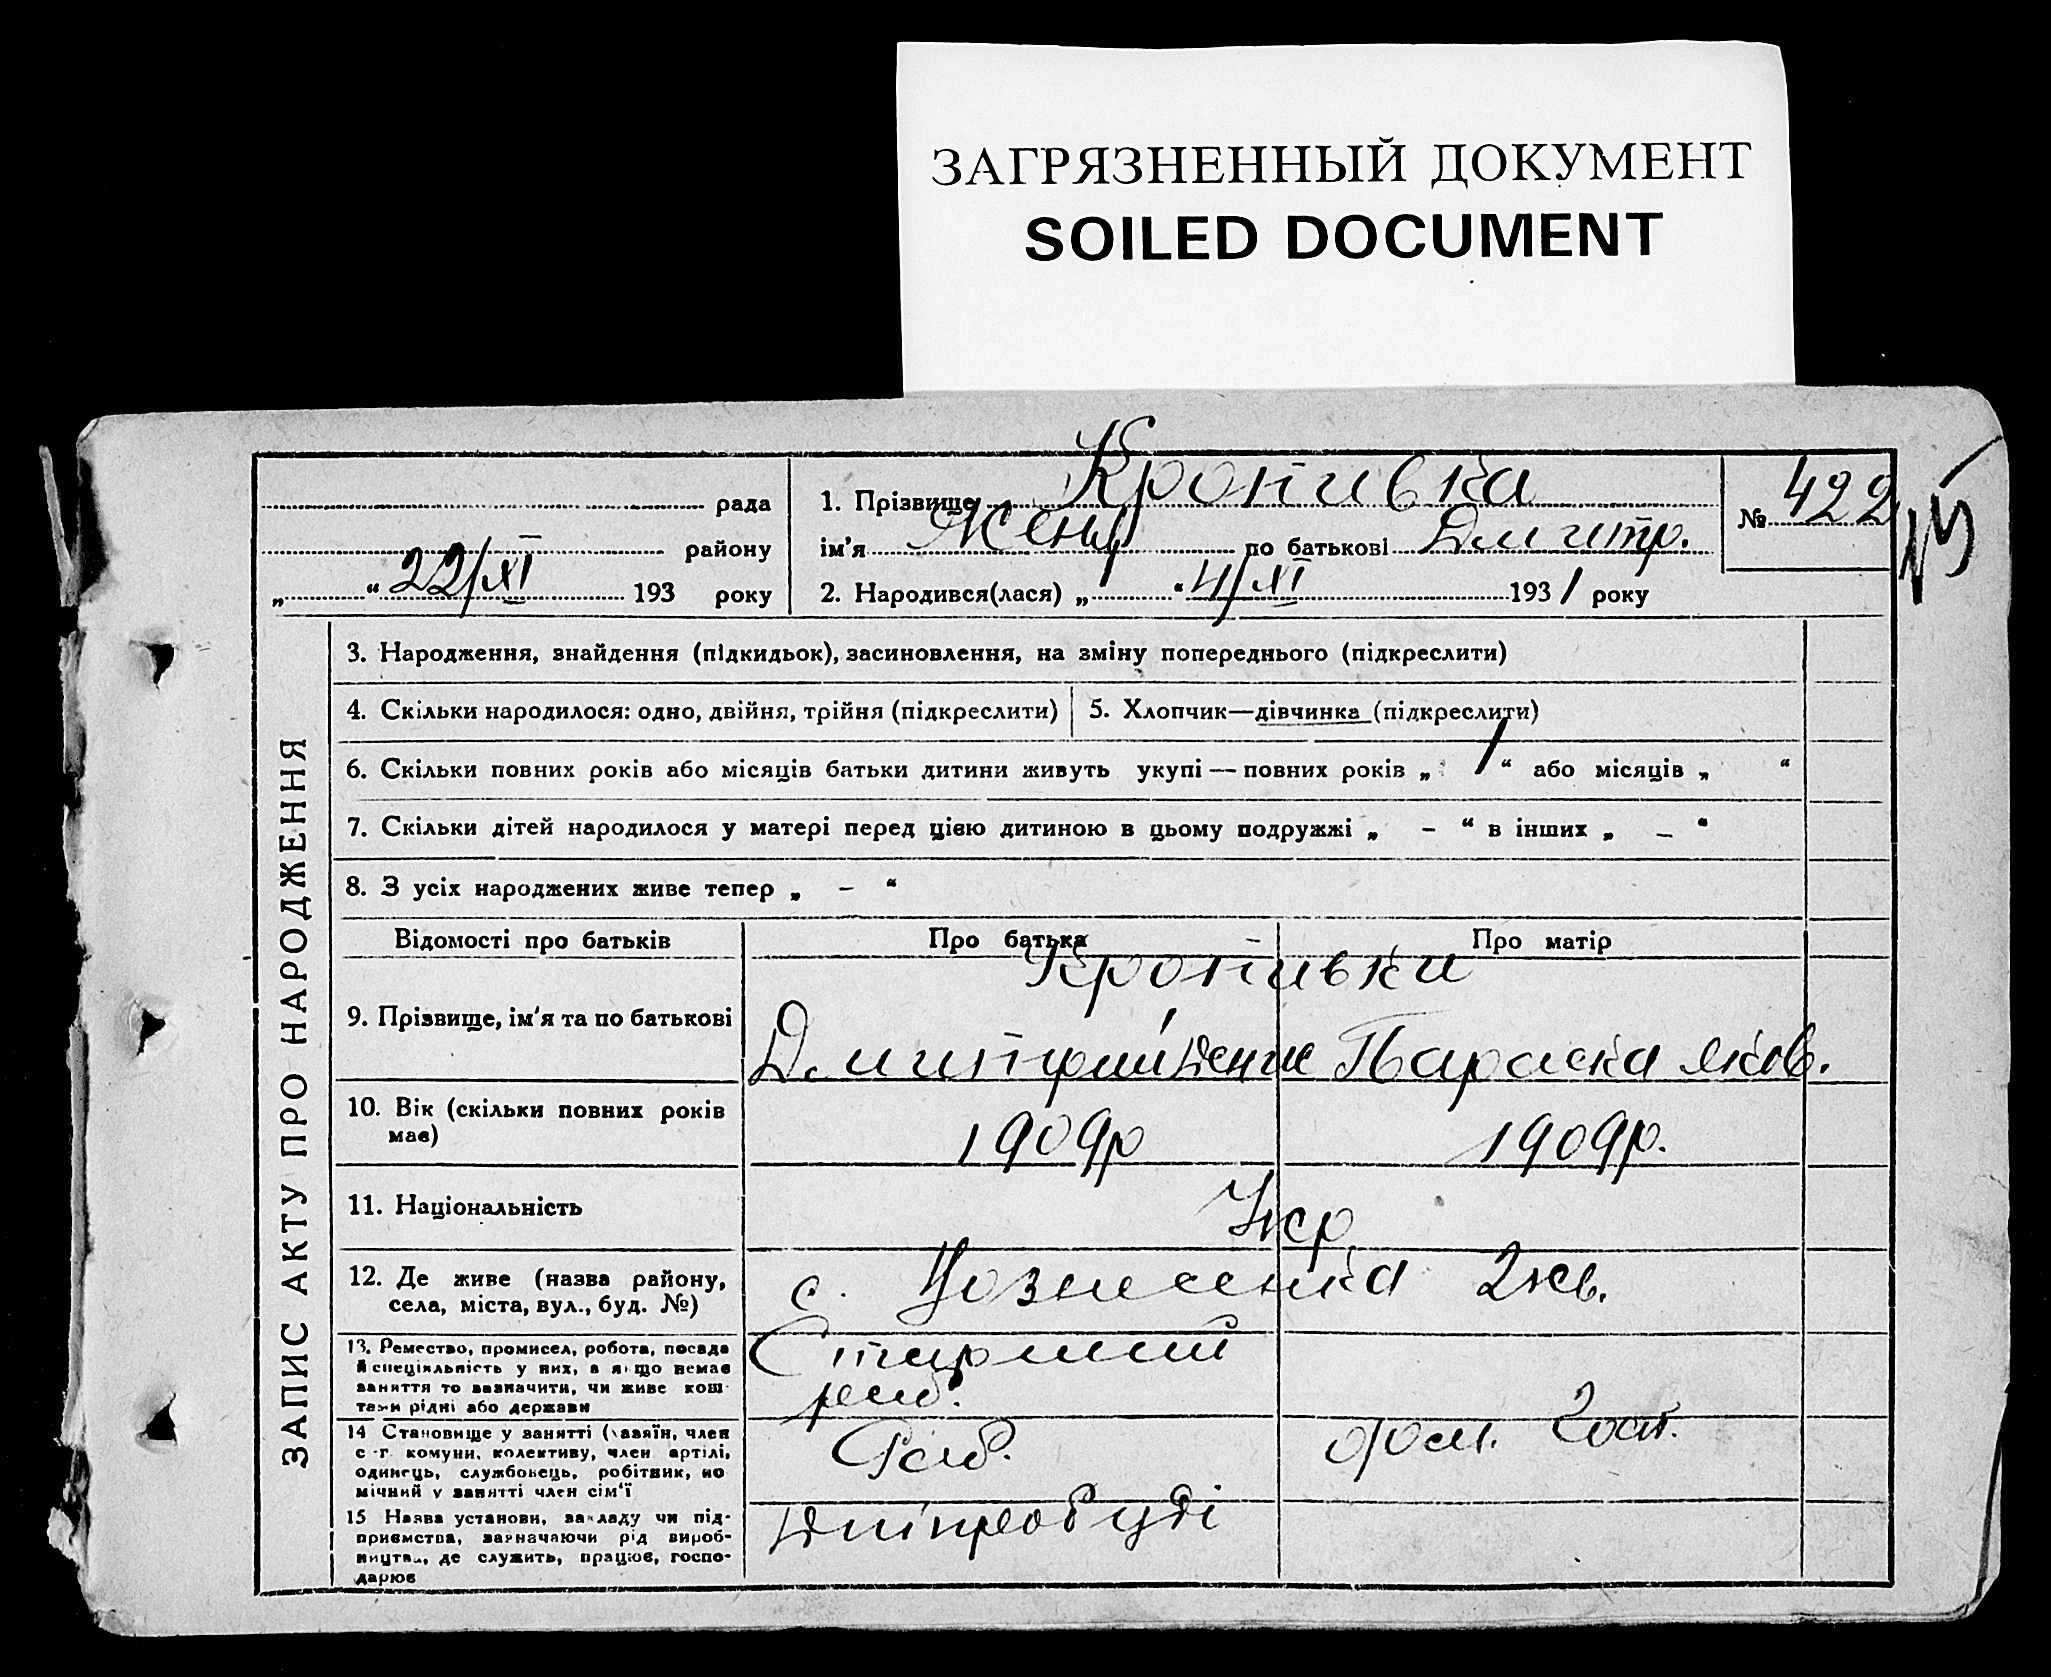 ЗАГРЯЗНЕННЫЙ ДОКУМЕНТ
SOILED DOCUMENT
рада
району
„ “ 22/XI 193 року
1. Прізвище Кропивка
ім'я Женя по батькові Дмитр.
2. Народився(лася) „ “ 4/XI 1931 року
№ 422
15
ЗАПИС АКТУ ПРО НАРОДЖЕННЯ
3. Народження, знайдення (підкидьок), засиновлення, на зміну попереднього (підкреслити)
4. Скільки народилося: одно, двійня, трійня (підкреслити)
5. Хлопчик—дівчинка (підкреслити)
6. Скільки повних років або місяців батьки дитини живуть укупі — повних років „ 1 “ або місяців „ “
7. Скільки дітей народилося у матері перед цією дитиною в цьому подружжі „ – “ в інших „ – “
8. З усіх народжених живе тепер „ – “
Відомості про батьків
Про батька
Про матір
Кропивки
9. Прізвище, ім'я та по батькові
Дмитрий Денис
Параска Яков.
10. Вік (скільки повних років
має)
1909р
1909р.
11. Національність
Укр.
12. Де живе (назва району,
села, міста, вул., буд. №)
с. Вознесенка 2кв.
13. Ремество, промисел, робота, посада
й спеціяльність у них, а якщо немає
заняття то зазначити, чи живе кош-
тами рідні або держави
Старший
роб.
14 Становище у занятті (хазяїн, член
с.-г. комуни, колективу, член артілі,
одинець, службовець, робітник, по
мічний у занятті член сім'ї
Роб.
дом. госп.
15 Назва установи, закладу чи під-
приємства, зазначаючи рід вироб-
ництва, де служить, працює, госпо-
дарює
Дніпробуді